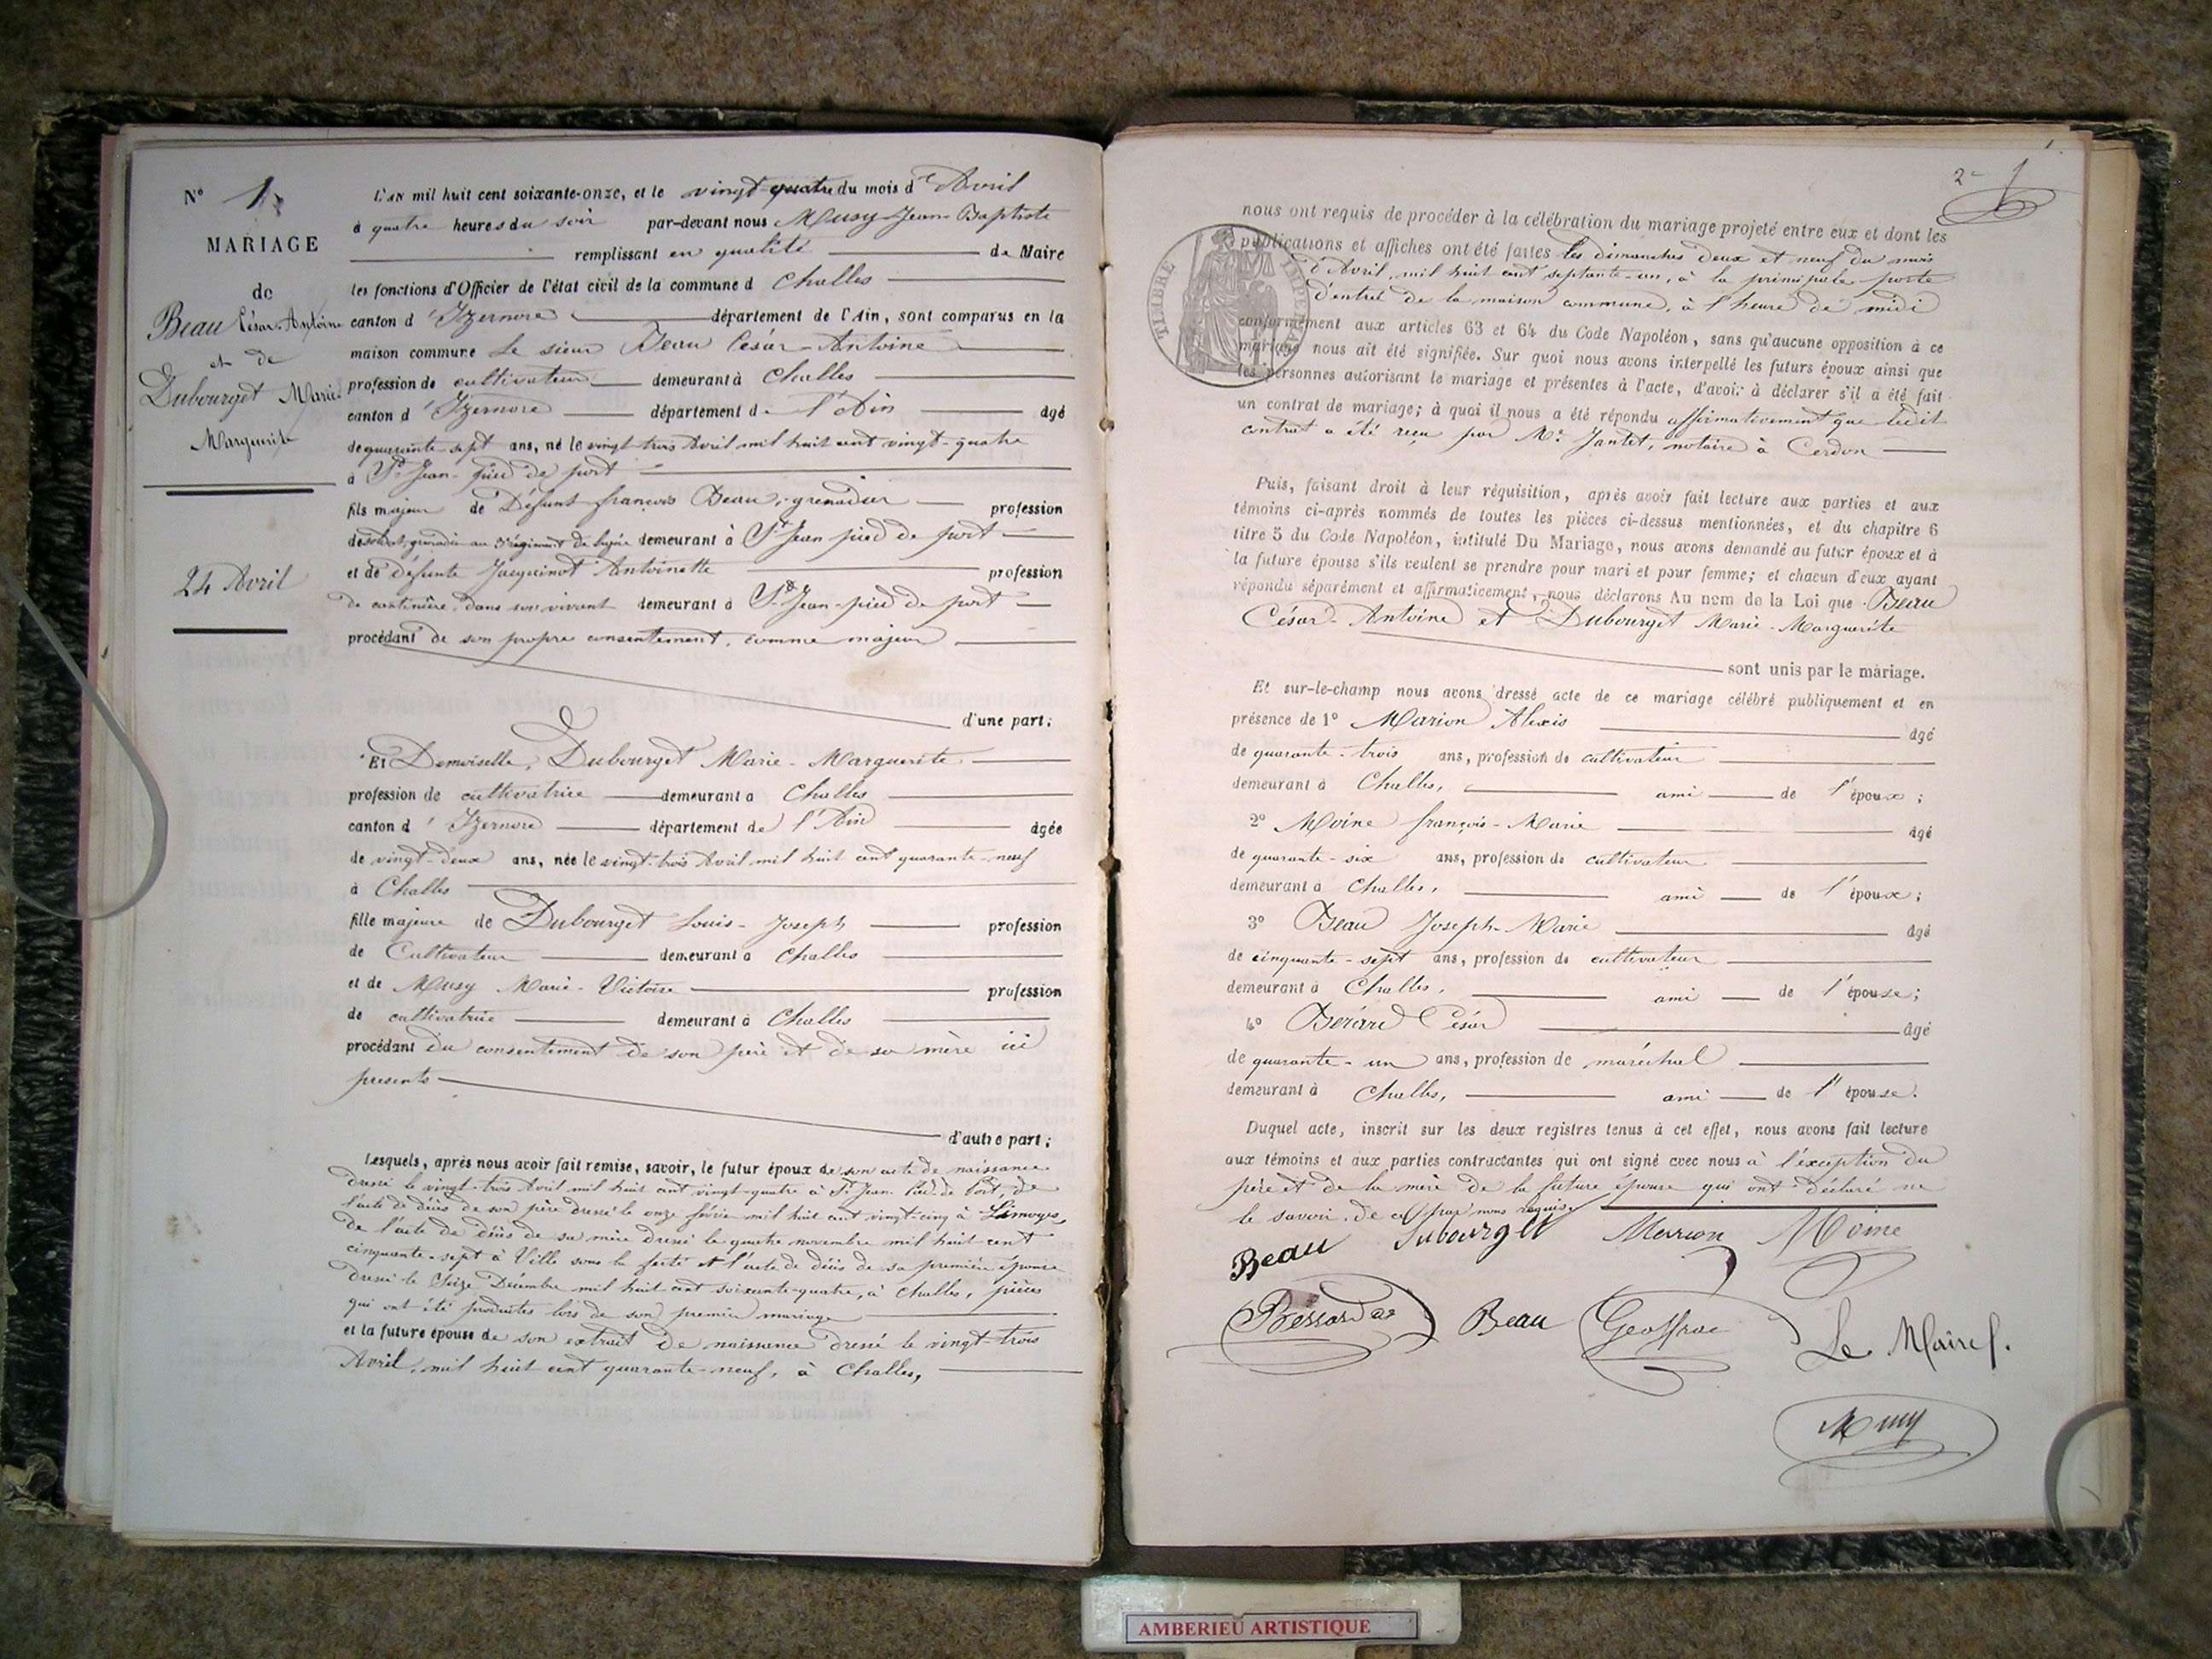 N° 1
MARIAGE
de
Beau César-Antoine
et de
Dubourget Marie
Marguerite
24 Avril
L'AN mil huit cent soixante-onze, et le vingt-quatre du mois d'Avril
à quatre heures du soir par-devant nous Musy Jean-Baptiste
remplissant en qualité de Maire
les fonctions d'Officier de l'état civil de la commune d Challes
canton d'Izernore département de l'Ain, sont comparus en la
maison commune Le sieur Beau César-Antoine
profession de cultivateur demeurant à Challes
canton d'Izernore département de l'Ain âgé
de quarante sept ans, né le vingt trois Avril mil huit cent vingt-quatre
à St Jean-pied de port
fils majeur de Défunt françois Beau, grenadier profession
de soldat, grenadier au 3e régiment de ligne demeurant à St Jean pied de port
et de défunte Jacquinot Antoinette profession
de cantinière dans son vivant demeurant à St Jean-pied de port
procédant de son propre consentement, comme majeur
d'une part;
Et Demoiselle, Dubourget Marie-Marguerite
profession de cultivatrice demeurant à Challes
canton d'Izernore département de l'Ain âgée
de vingt-deux ans, née le vingt-trois Avril mil huit cent quarante-neuf
à Challes
fille majeure de Dubourget Louis-Joseph profession
de Cultivateur demeurant à Challes
et de Musy Marie-Victoire profession
de cultivatrice demeurant à Challes
procédant du consentement de son père et de sa mère ici
presents
d'autre part;
Lesquels, après nous avoir fait remise, savoir, le futur époux de son acte de naissance
dressé le vingt-trois Avril mil huit cent vingt-quatre à St Jean-Pied de Port, de
l'acte de décès de son père dressé le onze février mil huit cent vingt-cinq à Limoges
de l'acte de décès de sa mère dressé le quatre novembre mil huit cent
cinquante-sept à Ville sous la ferté et l'acte de décès de sa première épouse
dressé le Seize Décembre mil huit cent soixante-quatre, à Challes, pièces
qui ont été produites lors de son premier mariage
et la future épouse de son extrait de naissance dressé le vingt-trois
Avril, mil huit cent quarante-neuf, à Challes,
2e
TIMBRE IMPERIAL
nous ont requis de procéder à la célébration du mariage projeté entre eux et dont les
publications et affiches ont été faites les dimanches deux et neuf du mois
d'Avril, mil huit cent septante-un, à la principale porte
d'entrée de la maison commune, à l'heure de midi
conformément aux articles 63 et 64 du Code Napoléon, sans qu'aucune opposition à ce
mariage nous ait été signifiée. Sur quoi nous avons interpellé les futurs époux ainsi que
les personnes autorisant le mariage et présentes à l'acte, d'avoir à déclarer s'il a été fait
un contrat de mariage; à quoi il nous a été répondu affirmativement que ledit
contrat a été reçu par Me Jantet, notaire à Cerdon
Puis, faisant droit à leur réquisition, après avoir fait lecture aux parties et aux
témoins ci-après nommés de toutes les pièces ci-dessus mentionnées, et du chapitre 6
titre 5 du Code Napoléon, intitulé Du Mariage, nous avons demandé au futur époux et à
la future épouse s'ils veulent se prendre pour mari et pour femme; et chacun d'eux ayant
répondu séparément et affirmativement, nous déclarons Au nom de la Loi que Beau
César-Antoine et Dubourget Marie-Marguerite
sont unis par le mariage.
Et sur-le-champ nous avons dressé acte de ce mariage célébré publiquement et en
présence de 1° Marion Alexis âgé
de quarante-trois ans, profession de cultivateur
demeurant à Challes, ami de l'époux;
2° Moine françois-Marie âgé
de quarante-six ans, profession de cultivateur
demeurant à Challes, ami de l'époux;
3° Beau Joseph-Marie âgé
de cinquante-sept ans, profession de cultivateur
demeurant à Challes, ami de l'épouse;
4° Berard César âgé
de quarante-un ans, profession de maréchal
demeurant à Challes, ami de l'épouse.
Duquel acte, inscrit sur les deux registres tenus à cet effet, nous avons fait lecture
aux témoins et aux parties contractantes qui ont signé avec nous à l'exception du
père et de la mère de la future épouse qui ont déclaré ne
le savoir de ce par nous requis.
Beau Dubourget Marion Moine
Beau Le Maire
Musy
AMBERIEU ARTISTIQUE